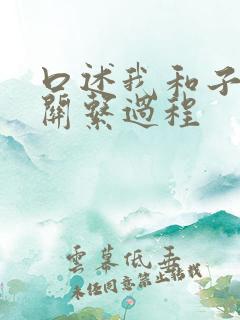 口述我和子
關繫過程
雲幕低垂
未经同意禁止转载